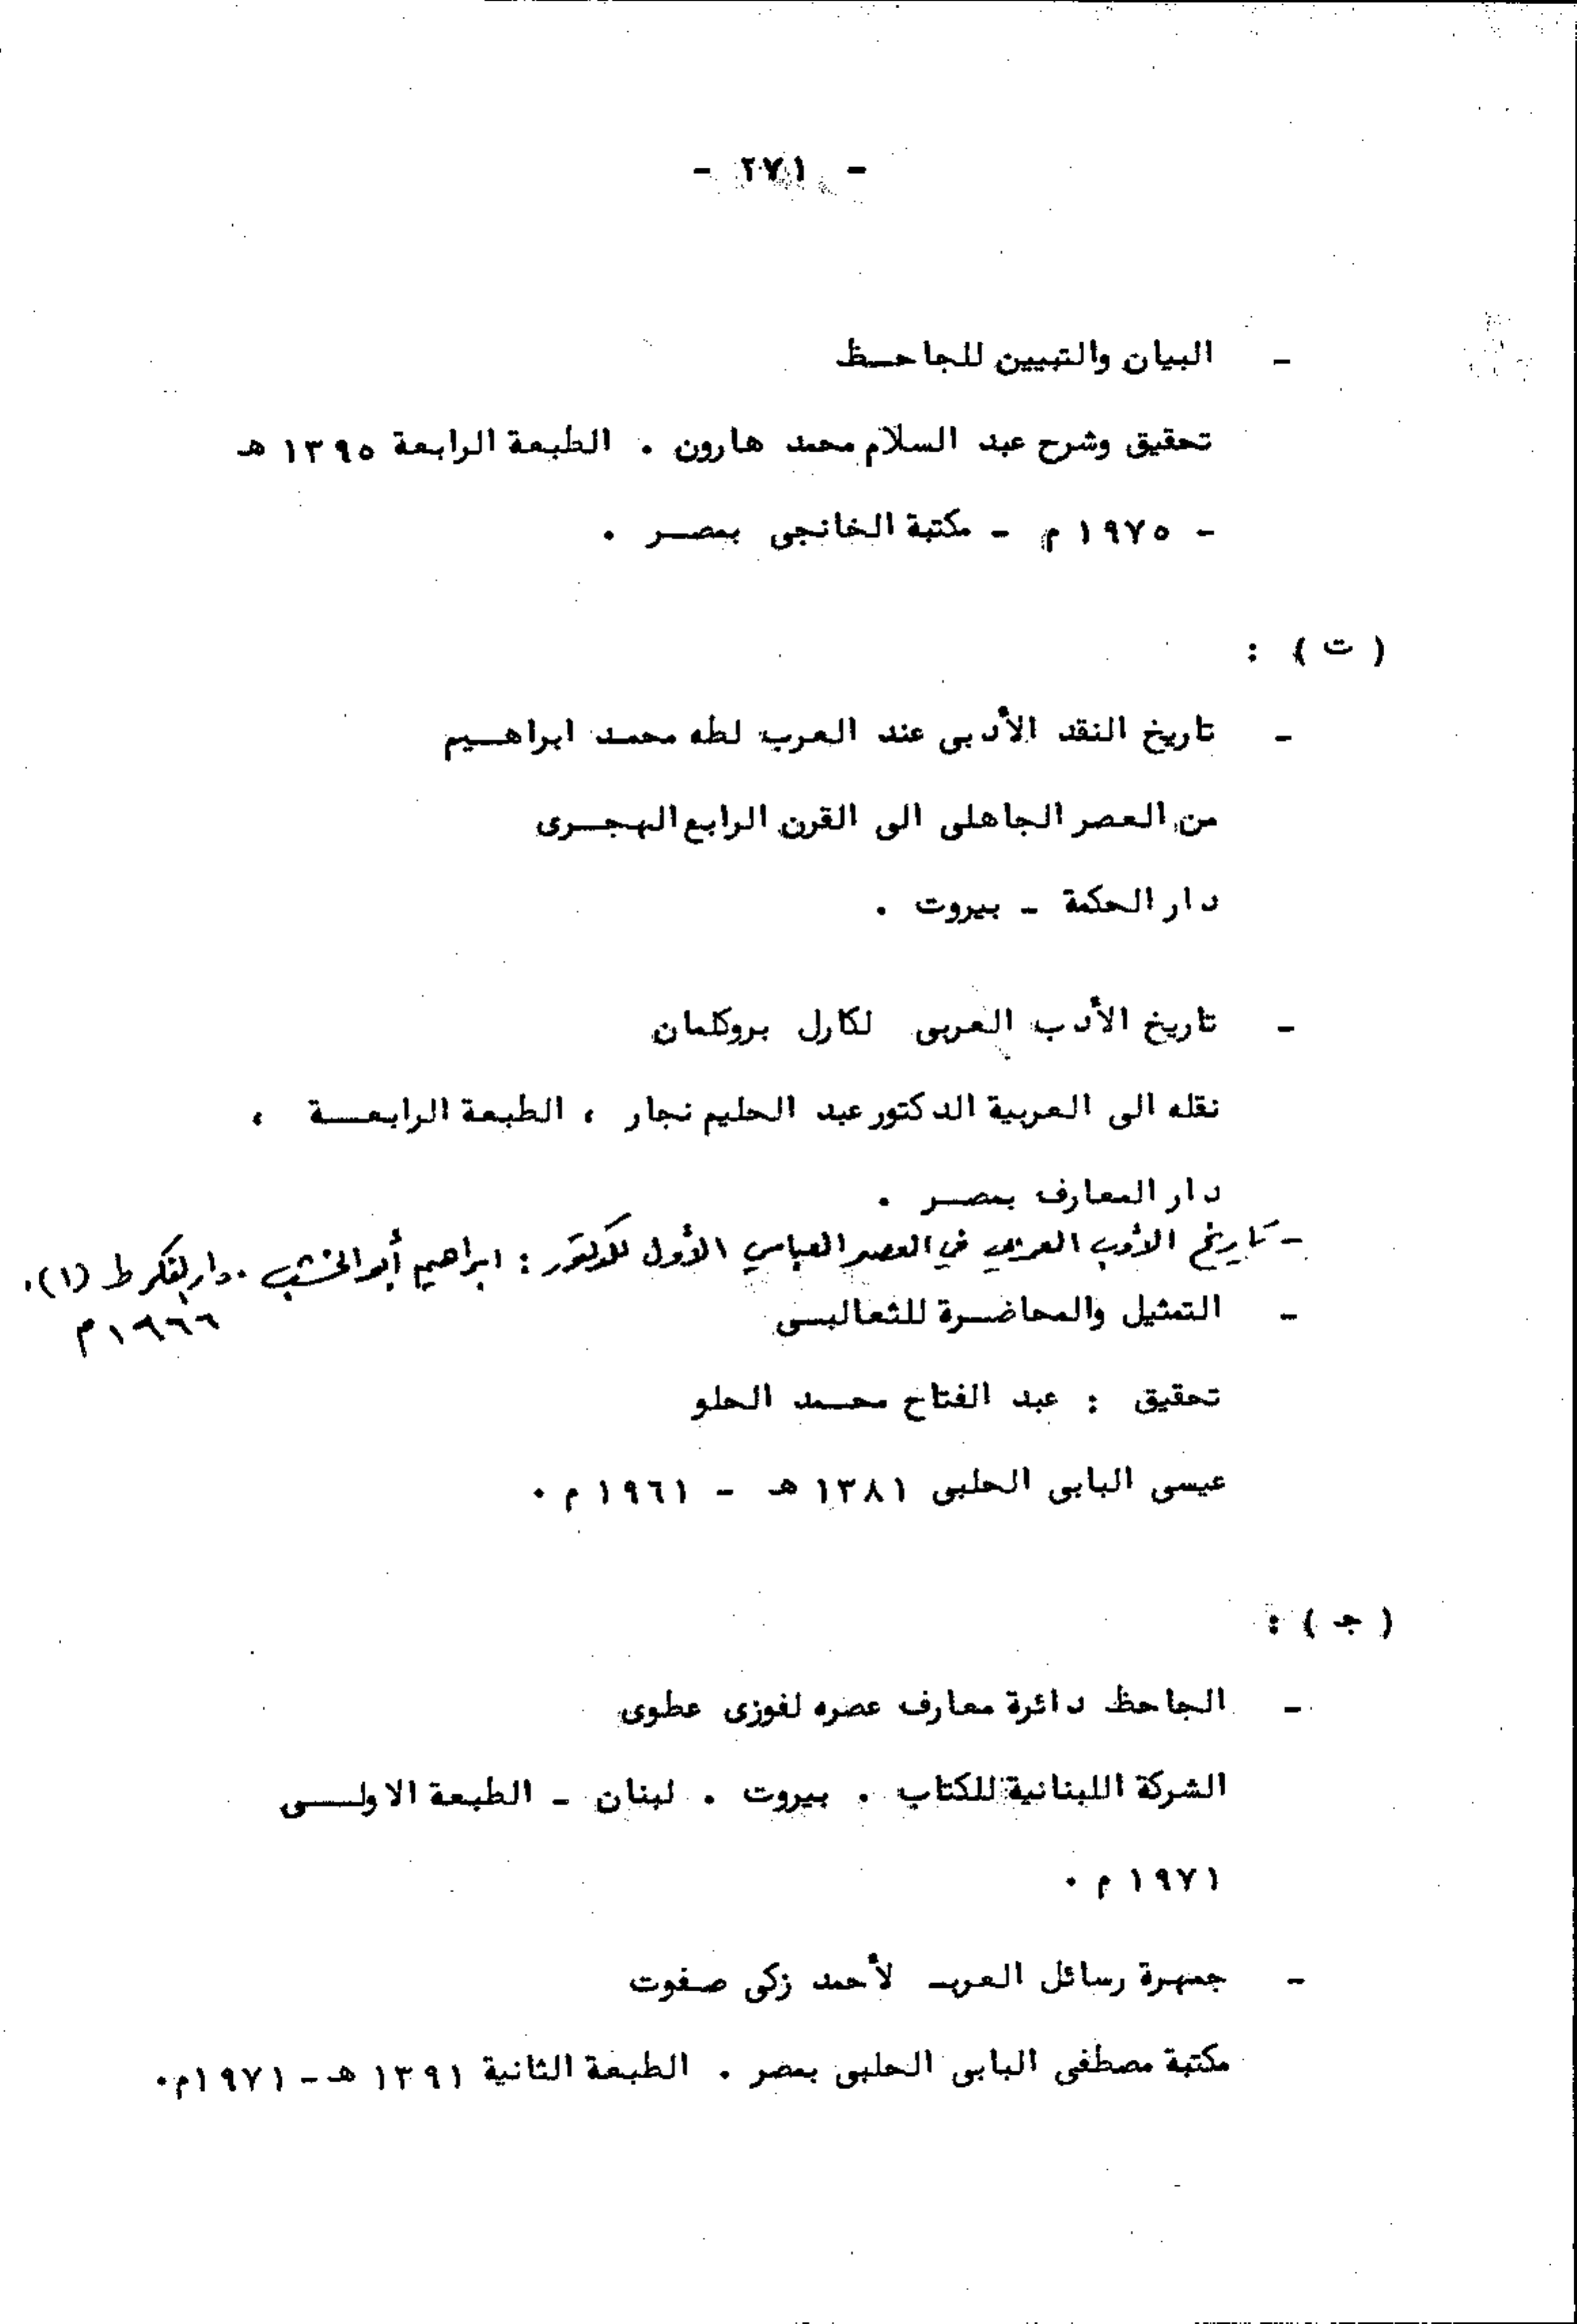 - ٢٧١ -
- البيان والتبيين للجاحـظ
تحقيق وشرح عبد السلام محمد هارون . الطبعة الرابعة ١٣٩٥ هـ
- ١٩٧٥ م - مكتبة الخانجى بمصـر .
( ت ) :
- تاريخ النقد الأدبى عند العرب لطه محمـد ابراهـيم
من العصر الجاهلى الى القرن الرابع الهجـرى
دار الحكمة - بيروت .
- تاريخ الأدب العربى لكارل بروكلمان
نقله الى العربية الدكتور عبد الحليم نجار ، الطبعة الرابعـة ،
دار المعارف بمصـر .
- تاريخ الأدب العربي في العصر العباسي الأول للدكتور : ابراهيم أبو الخشب . دار الفكر ط (١) .
١٩٦٦م
- التمثيل والمحاضـرة للثعالبـى
تحقيق : عبد الفتاح محـمد الحلو
عيسى البابى الحلبى ١٣٨١ هـ - ١٩٦١ م .
( جـ ) :
- الجاحظ دائرة معارف عصره لفوزى عطوى
الشركة اللبنانية للكتاب . بيروت . لبنان - الطبعة الاولـى
١٩٧١ م .
- جمهرة رسائل العرب لأحمد زكى صفوت
مكتبة مصطفى البابى الحلبى بمصر . الطبعة الثانية ١٣٩١ هـ - ١٩٧١م .